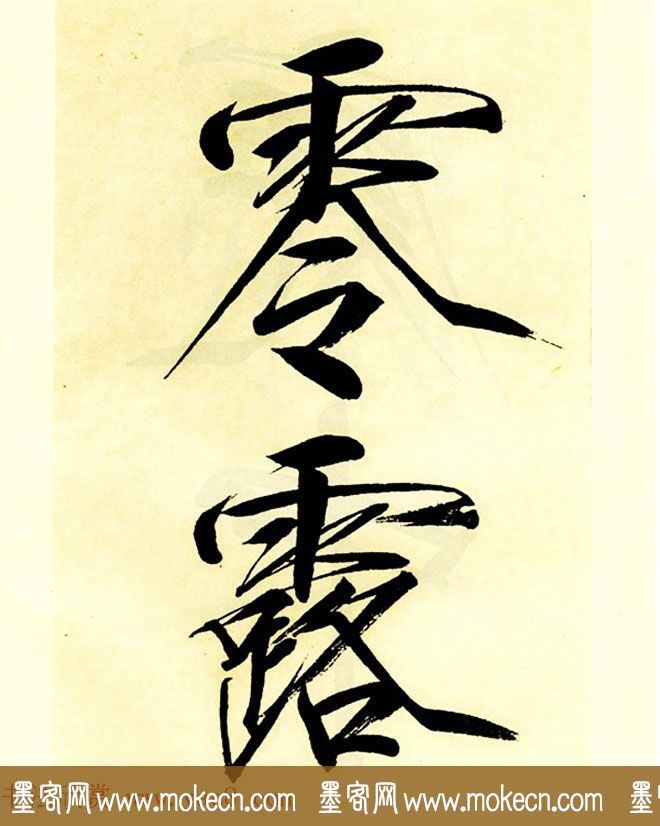 零
露
墨客网 www.mokecn.com 墨客网 www.mokecn.com